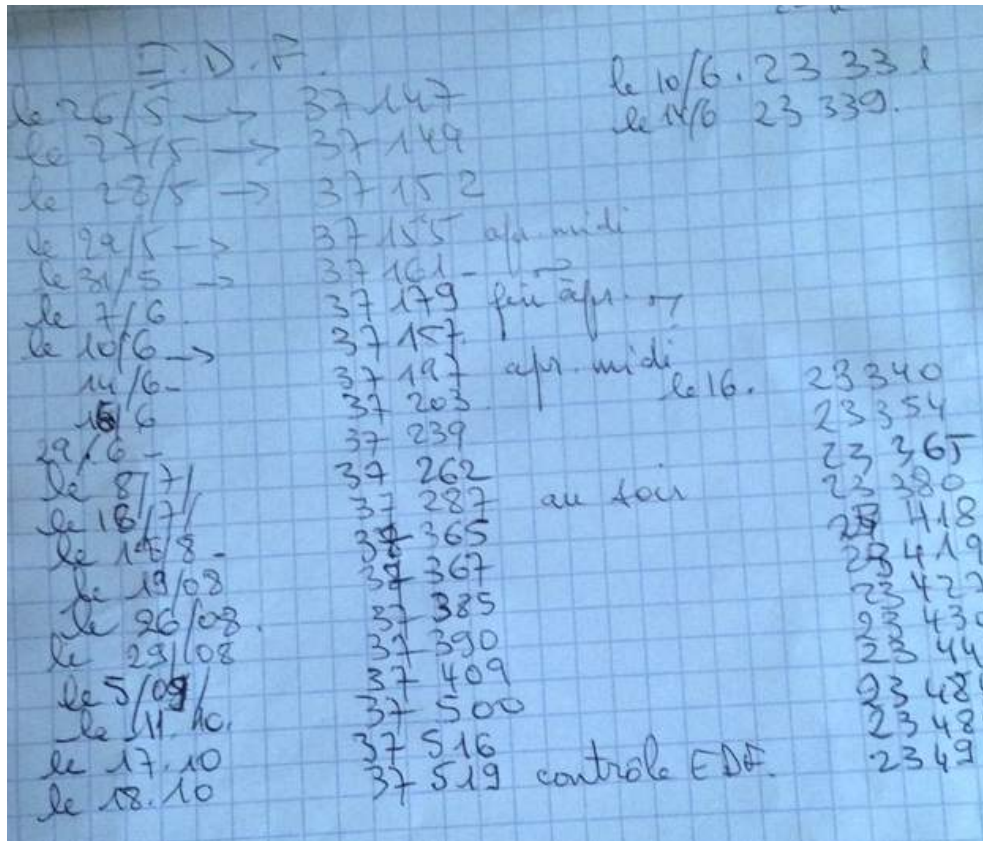 E.D.F.
le 26/5 -> 37 147 le 10/6. 23 33
le 27/5 -> 37 149 le 14/6 23 339.
le 28/5 -> 37 152
le 29/5 -> 37 155 apr. midi
le 31/5 -> 37 161 -
le 7/6. 37 179 fin apr.
le 10/6 -> 37 157
14/6 - 37 197 apr. midi
/6 37 203 le 16. 23340
29/6 - 37 239 23354
le 8/7/ 37 262 23 365
le 18/7/ 37 287 au soir 23 380
le /8 - 37 365 418
le 19/08 37 367 23 419
le 26/08. 37 385 23 42
le 29/08 37 390 23 43
le 5/09/ 37 409 23 44
le 11.10. 37 500 23 48
le 17.10 37 516 23 48
le 18.10 37 519 contrôle EDF. 23 49